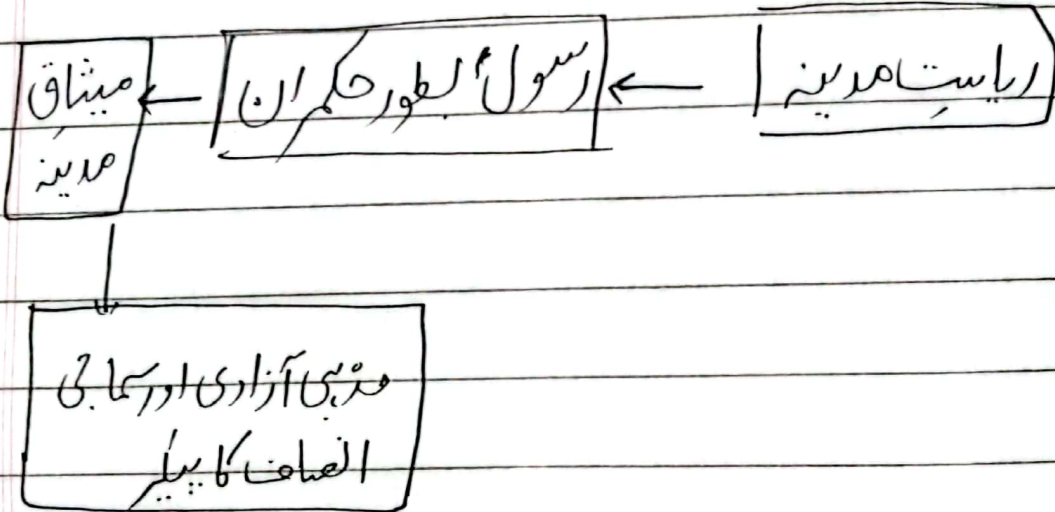 ریاستِ مدینہ
رسولؐ بطور حکمران
میثاقِ
مدینہ
مذہبی آزادی اور سماجی
انصاف کا پیکر